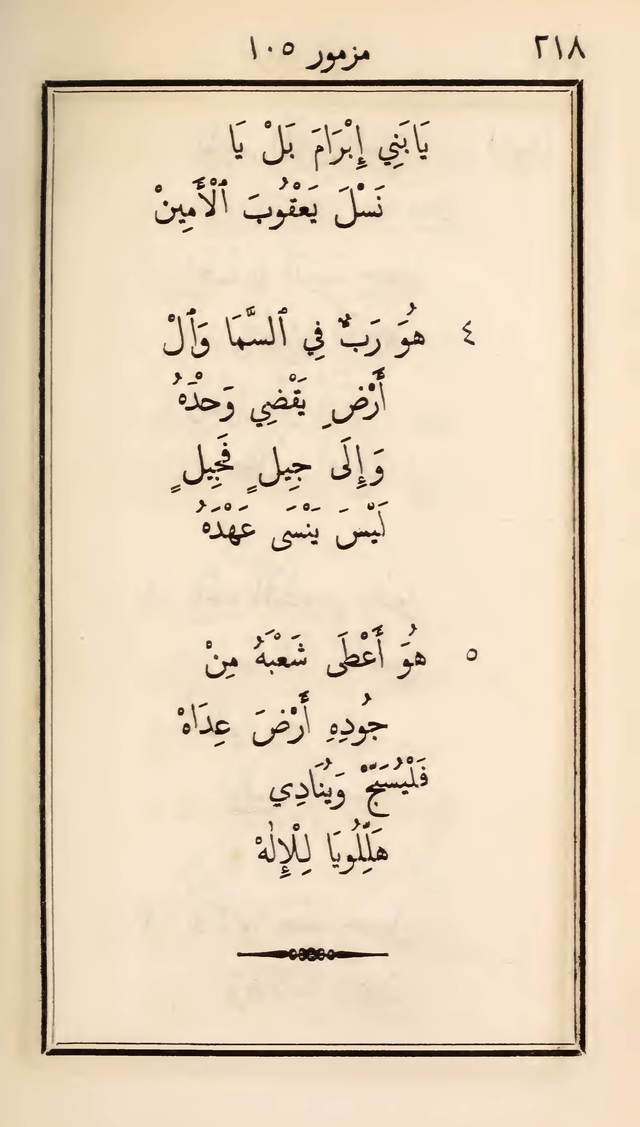 ٢١٨
مزمور ١٠٥
يَا بَنِي إِبْرَامَ بَلْ يَا
نَسْلَ يَعْقُوبَ ٱلْأَمِينْ
٤ هُوَ رَبٌّ فِي ٱلسَّمَا وَٱلْ
أَرْضِ يَقْضِي وَحْدَهُ
وَإِلَى جِيلٍ فَجِيلٍ
لَيْسَ يَنْسَى عَهْدَهُ
٥ هُوَ أَعْطَى شَعْبَهُ مِنْ
جُودِهِ أَرْضَ عِدَاهْ
فَلْيُسَبِّحْ وَيُنَادِي
هَلِّلُويَا لِلْإِلٰهْ